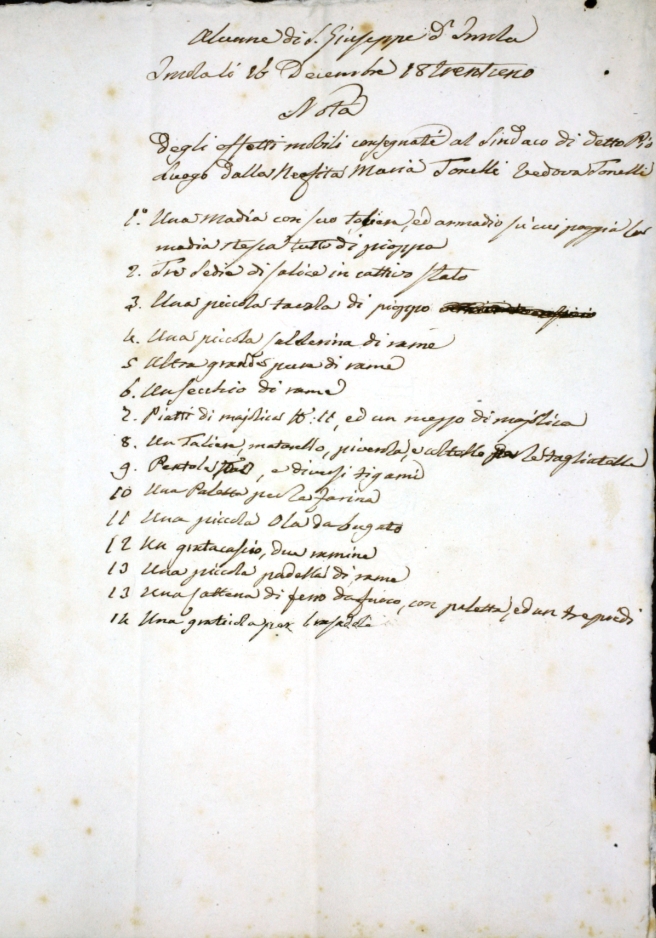 Alunne di S. Giuseppe d'Imola
Imola lì 16 Decembre 18trentuno
Nota
Degli effetti mobili consegnate al Sindaco di detto Pio
Luogo dalla Maria Tonelli vedova Tonelli
1.° Una Madia con suo ed armadio su cui poggia la
madia stessa tutto di pioppa
2. Tre Sedie di salice in cattivo stato
3. Una piccola tavola di pioppo
4. Una piccola di rame
5 Altra grande pura di rame
6. Un secchio di rame
7. Piatti di majolica N.° 11, ed un mezzo di majolica
8. Un Talier, matarello, e coltello per le tagliatelle
9. Pentola, e diversi tigami
10 Una Paletta per la farina
11 Una piccola Ola da bugato
12 Un gratacascio, due ramine
13 Una piccola padella di rame
13 Una cattena di ferro da fuoco, con paletta, ed un trepiedi
14 Una graticola per